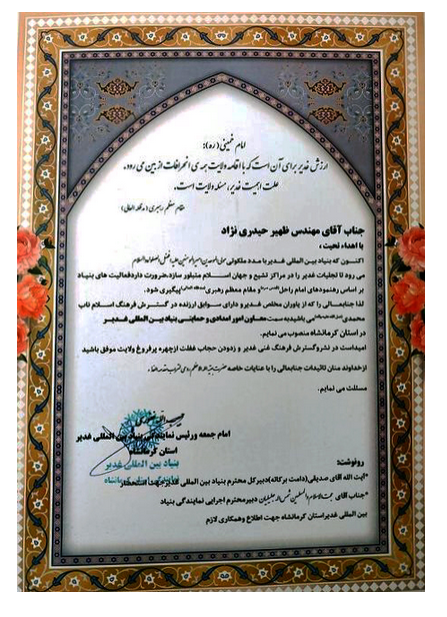 امام خمینی (ره):
ارزش غدیر برای آن است که با اقامه ولایت همه ی انحرافات از بین می رود.
علت اهمیت غدیر، مسئله ولایت است.
مقام معظم رهبری (مدظله العالی)
جناب آقای مهندس ظهیر حیدری نژاد
با اهداء تحیت ؛
اکنون که بنیاد بین المللی غدیر با مدد ملکوتی مولی الموحدین امیرالمومنین علیه افضل الصلوات السلام
می رود تا تجلیات غدیر را در مراکز تشیع و جهان اسلام متبلور سازد، ضرورت دارد فعالیت های بنیاد
بر اساس رهنمودهای امام راحل و مقام معظم رهبری پیگیری شود.
لذا جنابعالی را که از یاوران مخلص غدیر و دارای سوابق ارزنده در گسترش فرهنگ اسلام ناب
محمدی باشید به سمت معاون امور امدادی و حمایتی بنیاد بین المللی غدیر
در استان کرمانشاه منصوب می نمایم.
امیداست در نشر و گسترش فرهنگ غنی غدیر و زدودن حجاب غفلت از چهره پرفروغ ولایت موفق باشید
از خداوند منان تائیدات جنابعالی را با عنایات خاصه حضرت
مسئلت می نمایم.
امام جمعه و رئیس نمایندگی بنیاد بین المللی غدیر
استان کرمانشاه
بنیاد بین المللی غدیر
نمایندگی استان کرمانشاه
رونوشت:
*آیت الله آقای صدیقی (دامت برکاته) دبیر کل محترم بنیاد بین المللی غدیر جهت استحضار
*جناب آقای حجت الاسلام والمسلمین شمس الله جلیلیان دبیر محترم اجرایی نمایندگی بنیاد
بین المللی غدیر استان کرمانشاه جهت اطلاع و همکاری لازم